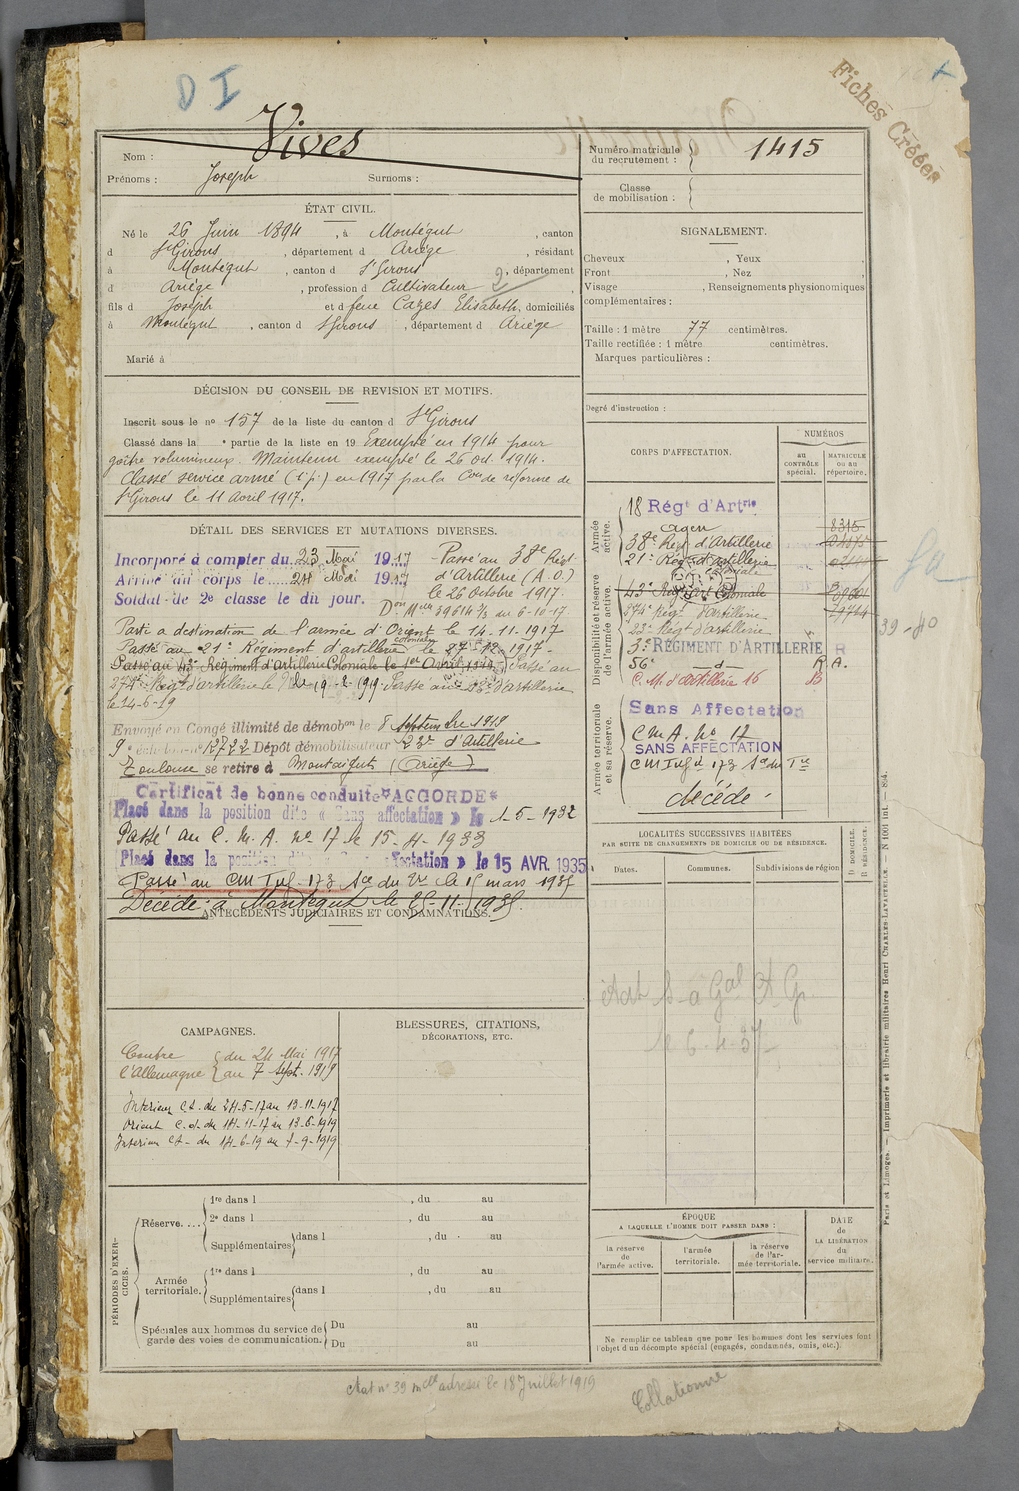 D I
Fiches Créées
Nom : Vives
Prénoms : Joseph Surnoms :
Numéro matricule du recrutement : 1415
Classe de mobilisation :
ÉTAT CIVIL.
Né le 26 Juin 1894, à Montégut, canton
d St Girons, département d Ariège, résidant
à Montégut, canton d St Girons, département
d Ariège, profession d Cultivateur 2,
fils d Joseph et d feue Cazes Elisabeth, domiciliés
à Montégut, canton d St Girons, département d Ariège
Marié à
SIGNALEMENT.
Cheveux , Yeux ,
Front , Nez ,
Visage , Renseignements physionomiques
complémentaires :
Taille : 1 mètre 77 centimètres.
Taille rectifiée : 1 mètre centimètres.
Marques particulières :
Degré d'instruction :
DÉCISION DU CONSEIL DE REVISION ET MOTIFS.
Inscrit sous le no 157 de la liste du canton d St Girons
Classé dans la e partie de la liste en 19 Exempté en 1914 pour
goître volumineux. Maintenu exempté le 26 oct. 1914.
Classé service armé en 1917 par la Con de réforme de
St Girons le 11 Avril 1917.
DÉTAIL DES SERVICES ET MUTATIONS DIVERSES.
Incorporé à compter du 23 Mai 1917 Passé au 38e Régt
Arrivé au corps le 24 Mai 1917 d'Artillerie (A.O.)
Soldat de 2e classe le dit jour. le 26 octobre 1917.
Parti a destination de l'armée d'Orient le 14-11-1917
Passé au 21e Régiment d'artillerie coloniale le 27-12-1917-
Passé au 43e Régiment d'Artillerie Coloniale le 1er Avril Passé au
274e Régt d'artillerie le 9-2-1919 Passé au 23e d'artillerie
le 14-6-19
Envoyé en Congé illimité de démobon le 8 septembre 1919
9e échelon no 12722 Dépôt démobilisateur 23e d'Artillerie
Toulouse se retire à Montaigut (Ariège)
Certificat de bonne conduite "ACCORDÉ"
Placé dans la position dite « Sans affectation » le 1-5-1932
Passé au C. M. A. no 17 le 15-4-1933
Placé dans la position dite Sans affectation » le 15 AVR. 1935
Passé au CM Inf. 173 Sce du Tre le 15 mars 1937
Décédé à Montégut le 25-11-1938.
ANTÉCÉDENTS JUDICIAIRES ET CONDAMNATIONS.
CORPS D'AFFECTATION.
NUMÉROS
au CONTRÔLE spécial.
MATRICULE ou au répertoire.
Armée active.
18 Régt d'Artrie
Agen 8315
38e Régt d'Artillerie
21e Régt d'artillerie coloniale
Disponibilité et réserve de l'armée active.
43e Régt Art Coloniale
274e Régt d'artillerie
23e Régt d'artillerie
3e RÉGIMENT D'ARTILLERIE R
56e —d— R.A.
C. M. d'artillerie 16 B
Armée territoriale et sa réserve.
Sans Affectation
C M A. No 17
SANS AFFECTATION
CM Inf d 173 Sce du Tre
décédé -
39-40
LOCALITÉS SUCCESSIVES HABITÉES
PAR SUITE DE CHANGEMENTS DE DOMICILE OU DE RÉSIDENCE.
Dates. Communes. Subdivisions de région
D DOMICILE.
R RÉSIDENCE.
le 6-4-37
CAMPAGNES.
Contre l'Allemagne du 24 Mai 1917
au 7 Sept. 1919
Interieur Ct. du 24-5-17 au 13-11-1917
Orient C.d. du 14-11-17 au 13-6-1919
Interieur Ct- du 14-6-19 au 7-9-1919
BLESSURES, CITATIONS,
DÉCORATIONS, ETC.
PÉRIODES D'EXERCICES.
Réserve....
1re dans l , du au
2e dans l , du au
Supplémentaires dans l , du au
Armée territoriale.
1re dans l , du au
Supplémentaires dans l , du au
Spéciales aux hommes du service de
garde des voies de communication.
Du au
Du au
ÉPOQUE
A LAQUELLE L'HOMME DOIT PASSER DANS :
la réserve de l'armée active.
l'armée territoriale.
la réserve de l'armée territoriale.
DATE de LA LIBÉRATION du service militaire.
Ne remplir ce tableau que pour les hommes dont les services font
l'objet d'un décompte spécial (engagés, condamnés, omis, etc.).
Paris et Limoges. — Imprimerie et librairie militaires Henri CHARLES-LAVAUZELLE. — N 1001 int. — 894.
Etat no 39 mcle adressé le 18 Juillet 1919
Collationné